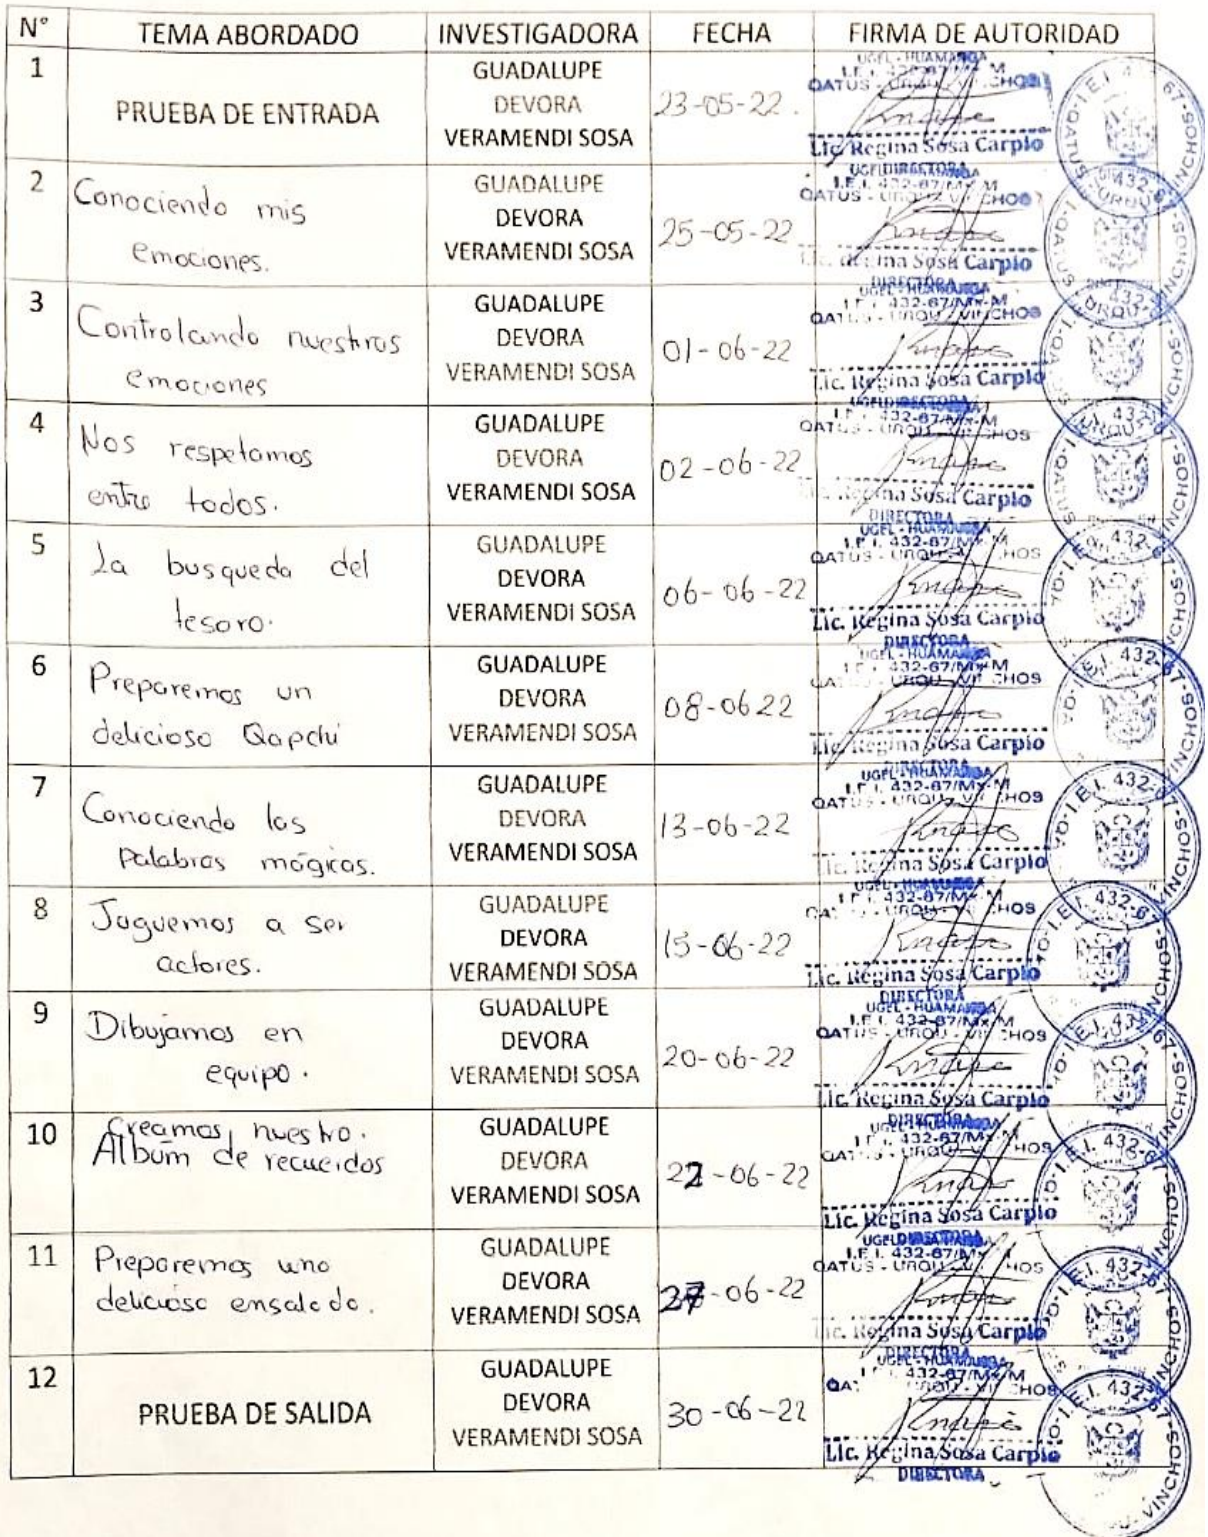 N° TEMA ABORDADO INVESTIGADORA FECHA FIRMA DE AUTORIDAD
1 PRUEBA DE ENTRADA GUADALUPE DEVORA VERAMENDI SOSA 23-05-22.
UGEL - HUAMANGA
I.E.I. 432-67/Mx-M
QATUS - URQU - VINCHOS
Lic. Regina Sosa Carpio
DIRECTORA
2 Conociendo mis
emociones.
GUADALUPE
DEVORA
VERAMENDI SOSA
25-05-22
I.E.I. 432-67/Mx-M
QATUS - URQU - VINCHOS
Lic. Regina Sosa Carpio
DIRECTORA
3 Controlando nuestras
emociones
GUADALUPE
DEVORA
VERAMENDI SOSA
01-06-22
UGEL - HUAMANGA
I.E.I. 432-67/Mx-M
QATUS - URQU - VINCHOS
Lic. Regina Sosa Carpio
DIRECTORA
4 Nos respetamos
entre todos.
GUADALUPE
DEVORA
VERAMENDI SOSA
02-06-22
I.E.I. 432-67/Mx-M
QATUS - URQU - VINCHOS
Lic. Regina Sosa Carpio
DIRECTORA
5 La busqueda del
tesoro.
GUADALUPE
DEVORA
VERAMENDI SOSA
06-06-22
UGEL - HUAMANGA
I.E.I. 432-67/Mx-M
QATUS - URQU - VINCHOS
Lic. Regina Sosa Carpio
DIRECTORA
6 Preparemos un
delicioso Qapchi
GUADALUPE
DEVORA
VERAMENDI SOSA
08-0622
UGEL - HUAMANGA
I.E.I. 432-67/Mx-M
QATUS - URQU - VINCHOS
Lic. Regina Sosa Carpio
DIRECTORA
7 Conociendo las
palabras mágicas.
GUADALUPE
DEVORA
VERAMENDI SOSA
13-06-22
UGEL - HUAMANGA
I.E.I. 432-67/Mx-M
QATUS - URQU - VINCHOS
Lic. Regina Sosa Carpio
8 Juguemos a ser
actores.
GUADALUPE
DEVORA
VERAMENDI SOSA
15-06-22
UGEL - HUAMANGA
I.E.I. 432-67/Mx-M
QATUS - URQU - VINCHOS
Lic. Regina Sosa Carpio
DIRECTORA
9 Dibujamos en
equipo.
GUADALUPE
DEVORA
VERAMENDI SOSA
20-06-22
UGEL - HUAMANGA
I.E.I. 432-67/Mx-M
QATUS - URQU - VINCHOS
Lic. Regina Sosa Carpio
DIRECTORA
10 Creamos nuestro.
Album de recuerdos
GUADALUPE
DEVORA
VERAMENDI SOSA
22-06-22
UGEL - HUAMANGA
I.E.I. 432-67/Mx-M
QATUS - URQU - VINCHOS
Lic. Regina Sosa Carpio
DIRECTORA
11 Preparemos una
deliciosa ensalada.
GUADALUPE
DEVORA
VERAMENDI SOSA
27-06-22
I.E.I. 432-67/Mx-M
QATUS - URQU - VINCHOS
Lic. Regina Sosa Carpio
DIRECTORA
12 PRUEBA DE SALIDA
GUADALUPE
DEVORA
VERAMENDI SOSA
30-06-22
UGEL - HUAMANGA
I.E.I. 432-67/Mx-M
QATUS - URQU - VINCHOS
Lic. Regina Sosa Carpio
DIRECTORA